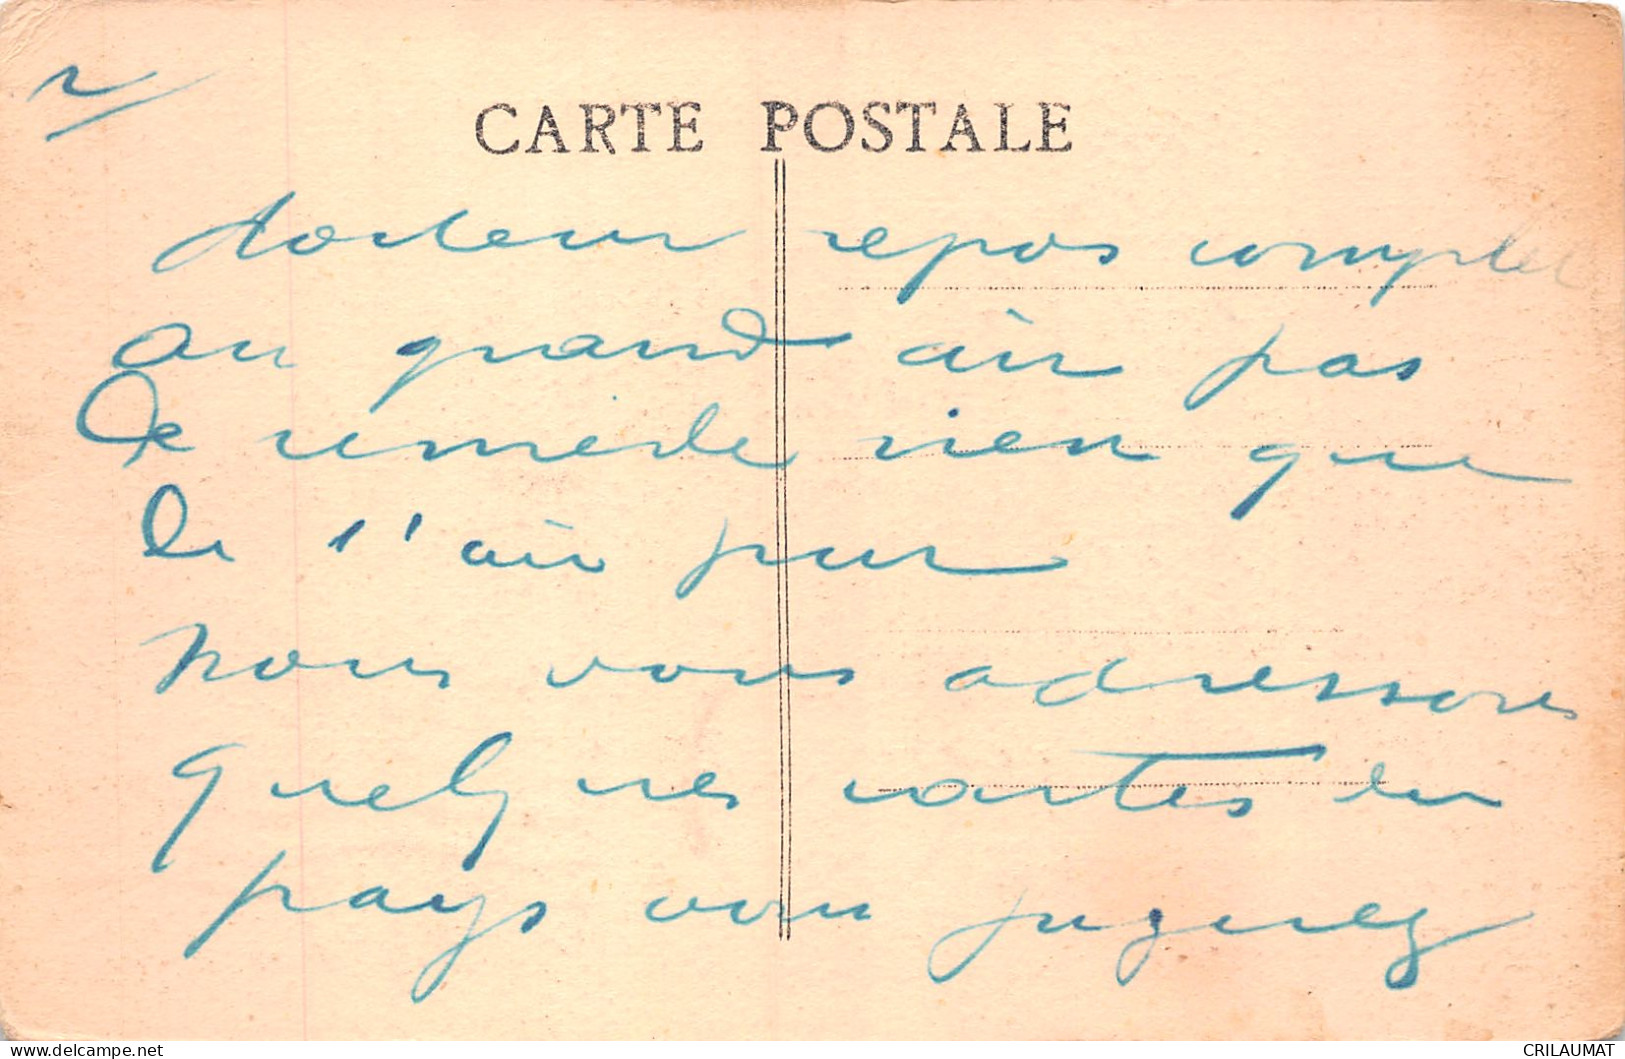 2
CARTE POSTALE
docteur repos complet
au grand air pas
de remède rien que
de l'air pur
nous vous adressons
quelques cartes du
pays vous jugerez
CRILAUMAT